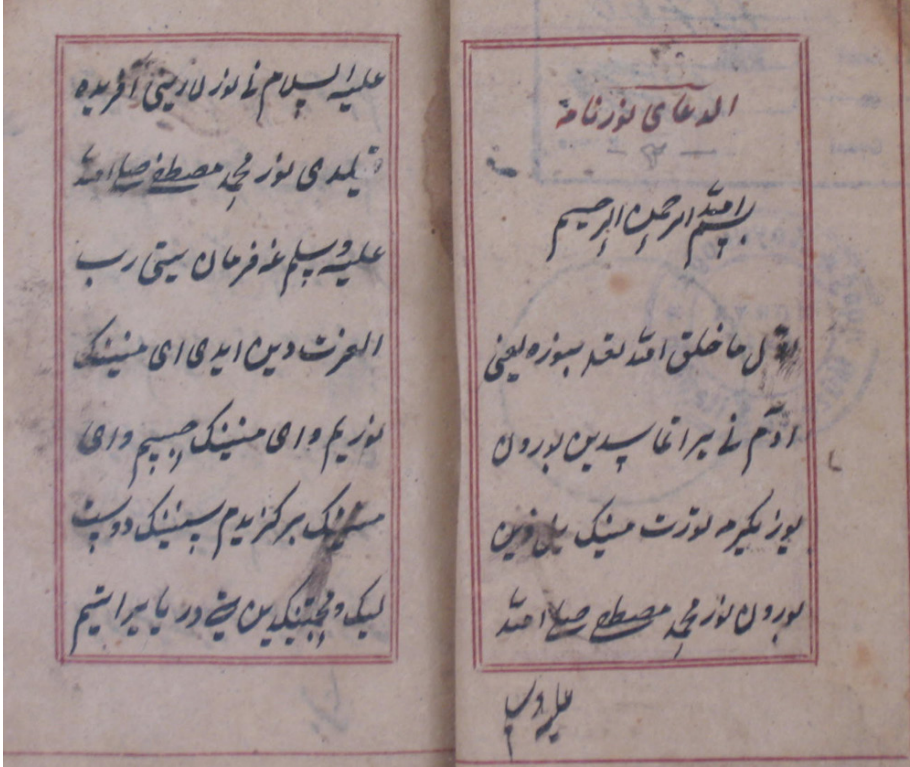 الدعای نورنامه
بسم الله الرحمن الرحیم
اول ما خلق الله یعنی
ادم نی یراتماسیدین بورون
یوز یکیرمه تورت مینک ییل دین
بورون نور محمد مصطفی صلی الله
علیه وسلم
علیه السلام نی نور لارینی افریده
قیلدی نور محمد مصطفی صلی الله
علیه وسلم غه فرمان یتی رب
العزت دین ایدی ای مینینک
نوریم وای مینینک حبیبم وای
مینینک برکزیدم سینینک دوست
لیک ومحبتینکدین یتی دریا یراتیم